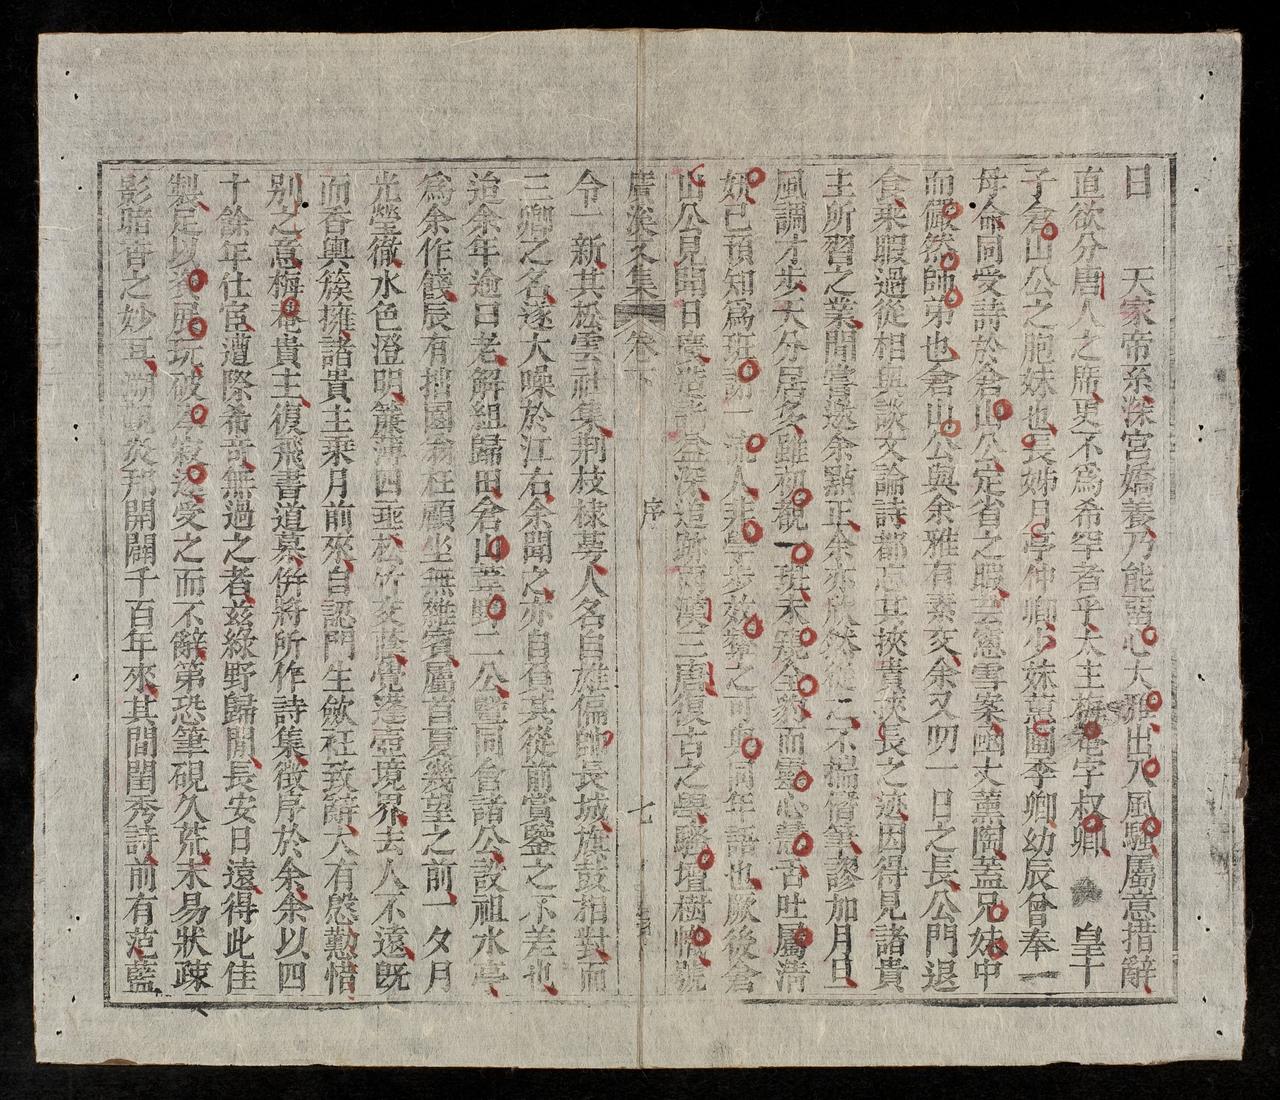 曰　天家帝系深宮嬌養乃能留心大雅出入風騷屬意措辭
直欲分唐人之席更不為希罕者乎大主梅菴字叔卿　皇十
子倉山公之胞妹也長姊月亭仲卿少妹蕙圃季卿幼辰曾奉
母命同受詩於倉山公定省之暇雪案函丈薰陶蓋兄妹中
而儼然師弟也倉山公與余雅有素交余又叨一日之長公門退
食乘暇過從相與談文論詩都忘其挾貴挾長之迹因得見諸貴
主所習之業間嘗送余點正余亦欣然從之不揣僭筆謬加月旦
風調才步天分居多雖初覩一斑未窺全豹而靈心慧舌吐屬清
妍已預知為班謝一流人非學步效顰之可與同年語也厥後倉
山公見聞日廣造詣益深追跡兩漢三唐復古之學騷壇樹幟號
廣溪文集　卷下　序　七
令一新其松雲社集荊枝棣萼人名自雄偏師長城旗鼓相對而
三卿之名遂大噪於江右余聞之亦自負其從前賞鑒之不差也
迨余年逾曰老解組歸田倉山葦野二公暨同會諸公設祖水亭
為余作餞辰有拙園翁枉顧坐無雜賓屬首夏幾望之前一夕月
光瑩徹水色澄明簾薄四垂松竹交蔭覺蓬壺境界去人不遠既
而香輿簇擁諸貴主乘月前來自認門生歛衽致辭大有慇懃惜
別之意梅菴貴主復飛書道慕併將所作詩集徵序於余余以四
十餘年仕宦遭際希奇無過之者茲綠野歸閒長安日遠得此佳
製足以資展玩破岑寂遂受之而不辭第恐筆硯久荒未易狀疎
影暗香之妙耳溯觀炎邦開闢千百年來其間閨秀詩前有范藍